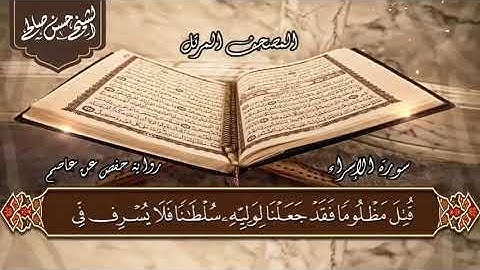 الشيخ حسن صالح
المصحف المرتل
سورة الإسراء
رواية حفص عن عاصم
قُتِلَ مَظْلُومًا فَقَدْ جَعَلْنَا لِوَلِيِّهِۦ سُلْطَٰنًا فَلَا يُسْرِف فِّي